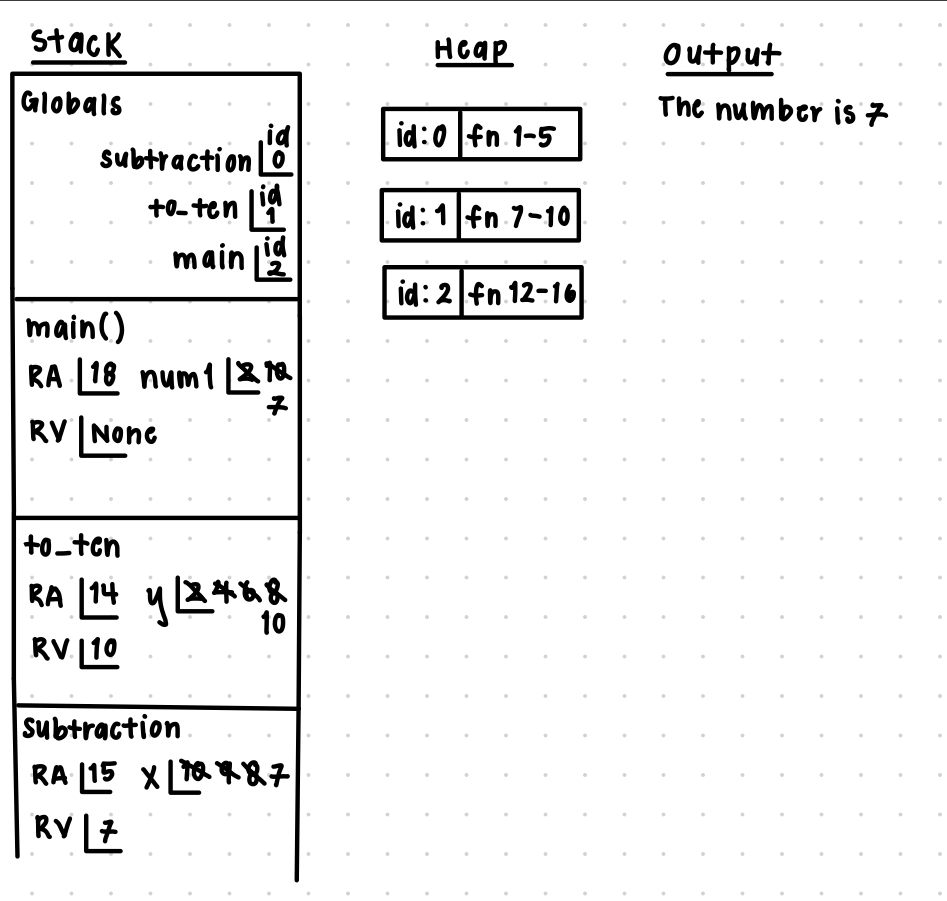 Stack
Globals
subtraction id 0
to_ten id 1
main id 2
main()
RA 18 num1 2 10
7
RV None
to_ten
RA 14 y 2 4 6 8
10
RV 10
subtraction
RA 15 x 10 9 8 7
RV 7
Heap
id:0 fn 1-5
id: 1 fn 7-10
id: 2 fn 12-16
Output
The number is 7